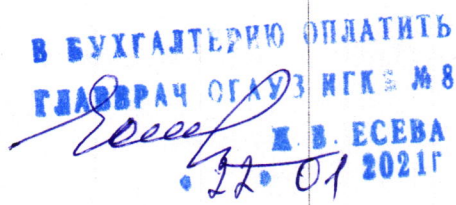 В БУХГАЛТЕРИЮ ОПЛАТИТЬ
ГЛАВВРАЧ ОГАУЗ ИГКБ № 8
Ж. В. ЕСЕВА
22 01 2021г